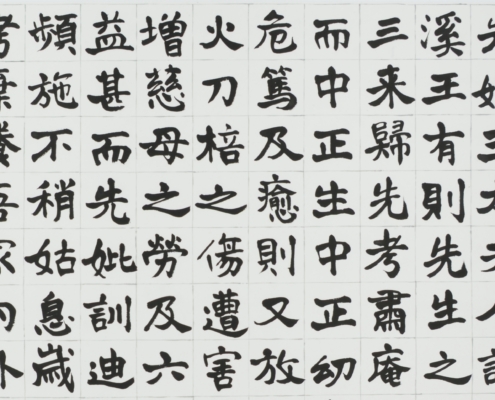 先妣夫人
溪王有則先生之
三来歸先考肅庵
而中正生中正幼
危篤及癒則又放
火刀棓之傷遭害
增慈母之勞及六
益甚而先妣訓迪
頻施不稍姑息歲
考棄養吾家内外